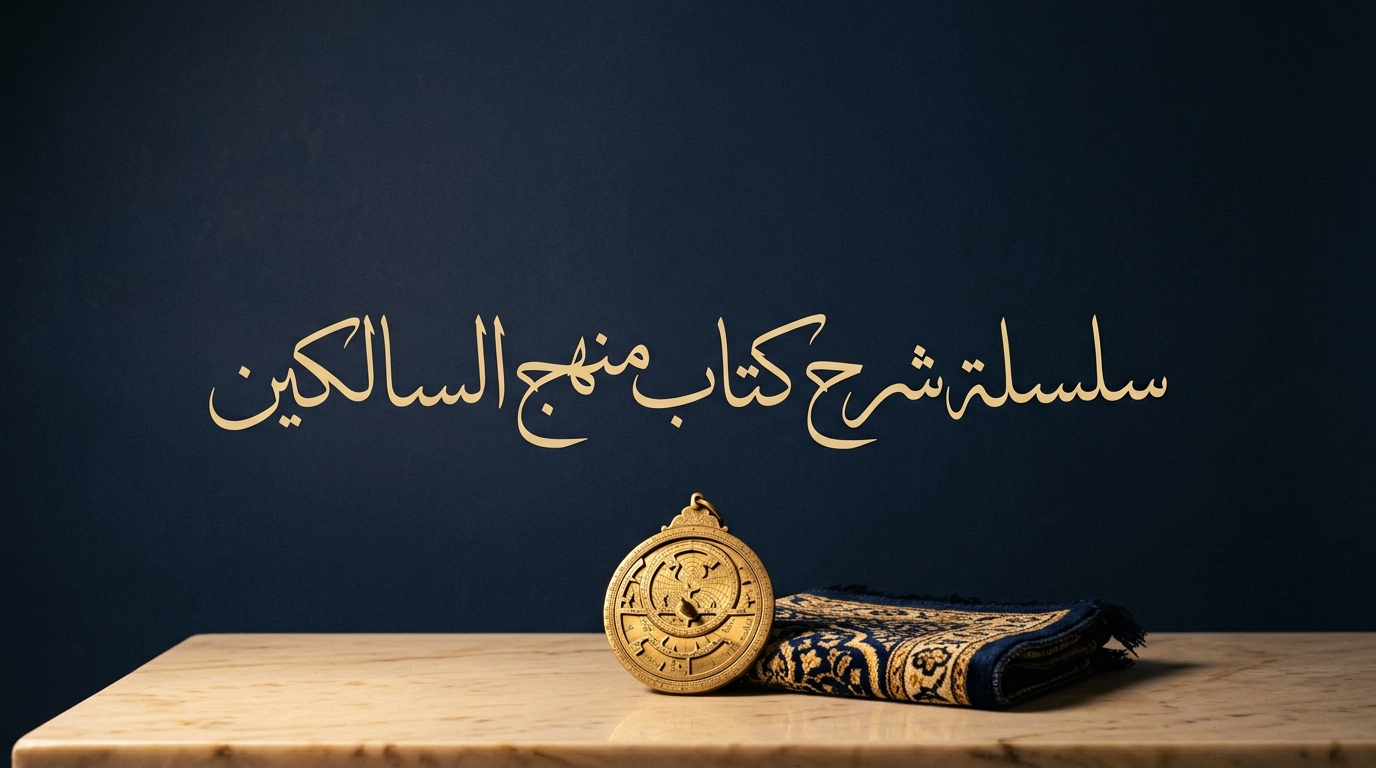 سلسلة شرح كتاب منهج السالكين